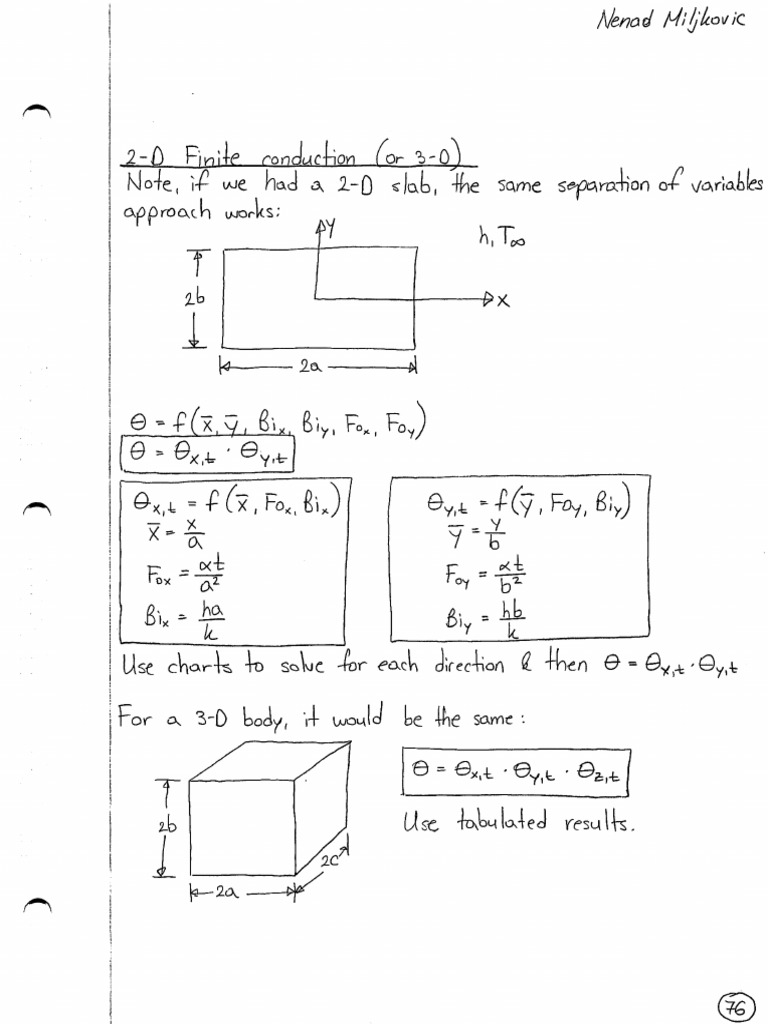 Nenad Miljkovic
2-D Finite conduction (or 3-D)
Note, if we had a 2-D slab, the same separation of variables
approach works:
y
h, T∞
2b
x
2a
θ = f(x̄, ȳ, Biₓ, Bi_y, Foₓ, Fo_y)
θ = θ_x,t · θ_y,t
θ_x,t = f(x̄, Foₓ, Biₓ)
x̄ = x/a
Foₓ = αt/a²
Biₓ = ha/k
θ_y,t = f(ȳ, Fo_y, Bi_y)
ȳ = y/b
Fo_y = αt/b²
Bi_y = hb/k
Use charts to solve for each direction & then θ = θ_x,t · θ_y,t
For a 3-D body, it would be the same:
θ = θ_x,t · θ_y,t · θ_z,t
2b
Use tabulated results.
2c
2a
76